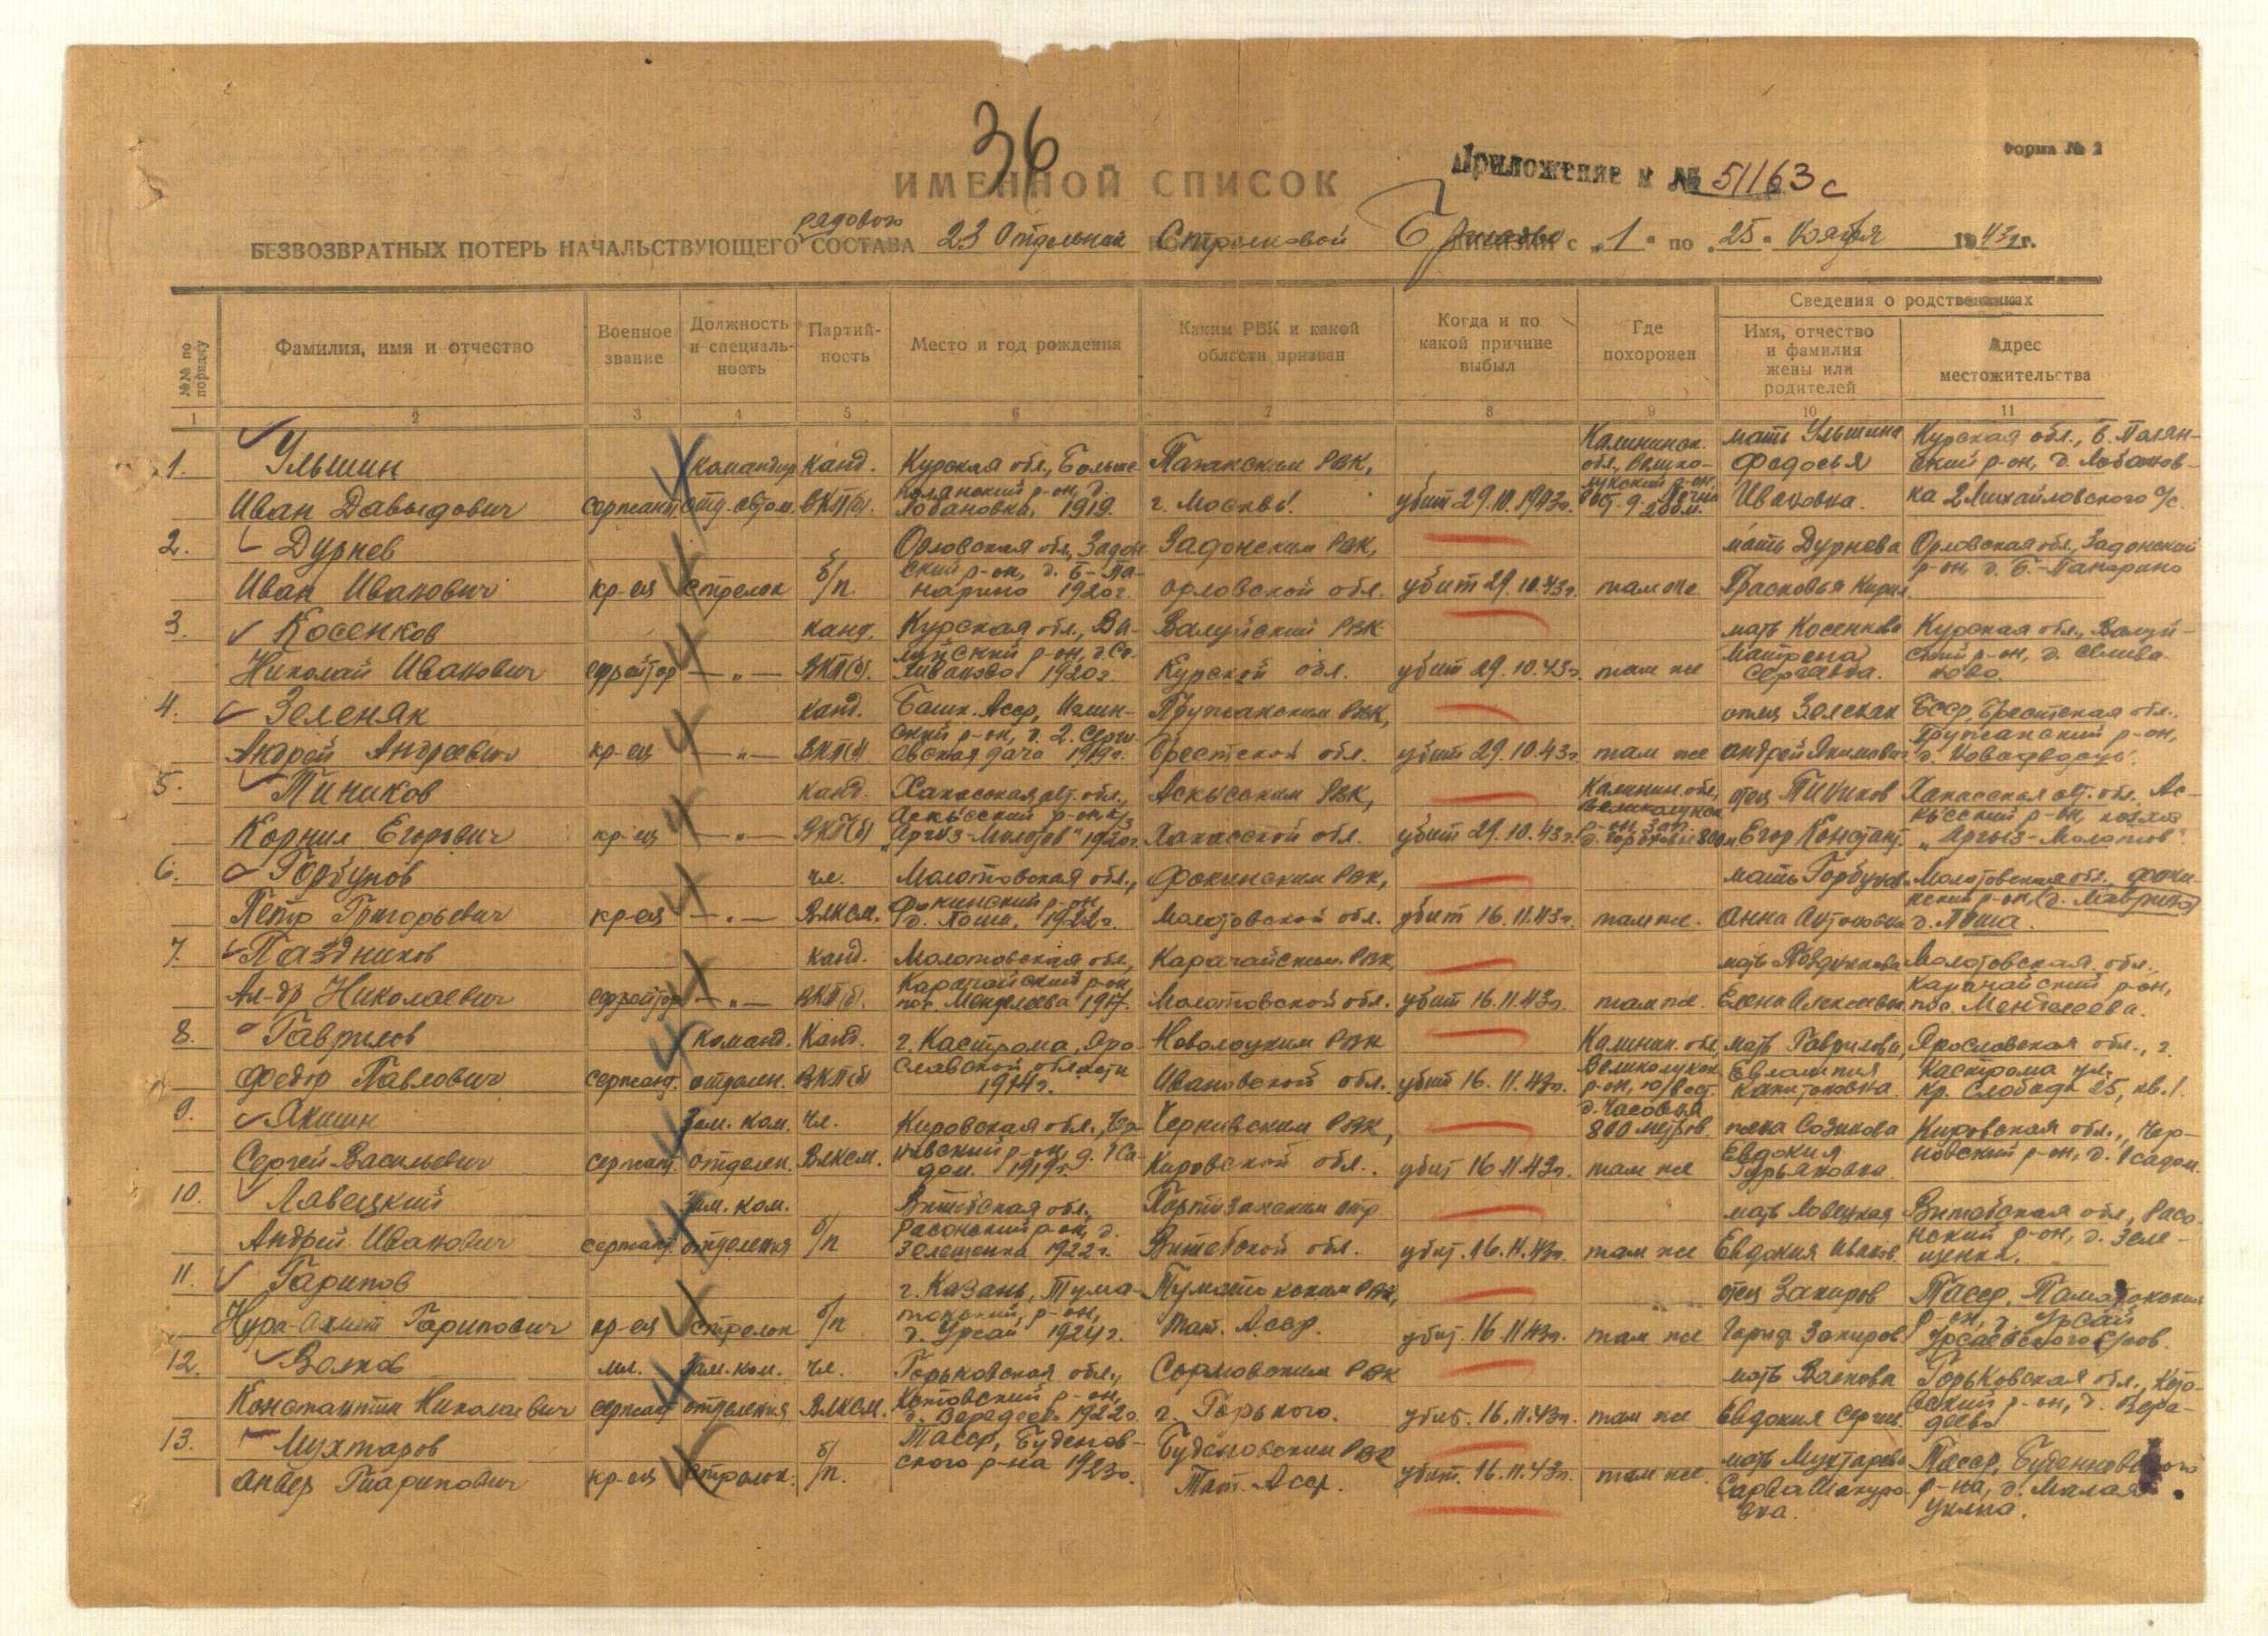 36
Форма № 2
ИМЕННОЙ СПИСОК
Приложение к № 51163с
рядового
БЕЗВОЗВРАТНЫХ ПОТЕРЬ НАЧАЛЬСТВУЮЩЕГО СОСТАВА 23 Отдельной Стрелковой с "1" по "25" 1943 г.
№№ по порядку
Фамилия, имя и отчество
Военное звание
Должность и специальность
Партийность
Место и год рождения
Каким РВК и какой области призван
Когда и по какой причине выбыл
Где похоронен
Сведения о родственниках
Имя, отчество и фамилия жены или родителей
Адрес местожительства
1 2 3 4 5 6 7 8 9 10 11
1. Ульшин командир канд. Курская обл., Больше РВК, Калининск. обл., мать Ульшина Курская обл., Б. Полян-
Федосья ский р-он, д. Лобанов-
Иван Давыдович сержант отд. автом. ВКП(б). полянский р-он, д. Лобановка, 1919. г. Москвы. убит 29.10.1943г. Ивановна. ка 2 Михайловского с/с.
2. Дурнев б/п Орловская обл., Задон- Задонским РВК, мать Дурнева Орловская обл., Задонский
Иван Иванович кр-ец стрелок ский р-он, д. Б-Панарино 1920г. орловской обл. убит 29.10.43г. там же Прасковья Кирил р-он, д. Б.-Панарино
3. Косенков канд. Курская обл., Ва- Валуйский РВК мать Косенкова Курская обл., Валуй-
Николай Иванович ефрейтор —"— ВКП(б). луйский р-он, д. Селиваново 1920г. Курской обл. убит 29.10.43г. там же Матрена Сергеевна. ский р-он, д. Селиваново.
4. Зеленяк канд. Башк. Асср, Пружанским РВК, отец Зеленяк Бсср, Брестская обл.,
Андрей Андреевич кр-ец —"— ВКП(б) ский р-он, д. 2. дача Брестской обл. убит 29.10.43г. там же Андрей Якимович Пружанский р-он,
5. Тиников канд. Хакасская авт. обл., Аскысским РВК, Калинин. обл, отец Тиников Хакасская авт. обл. Ас-
Корнил Егорович кр-ец —"— ВКП(б) Аскысский р-он, к/з "Аргыз-Молотов" 1920г. Хакасской обл. убит 29.10.43г. Великолукск. р-он, 800м Егор Констант. кысский р-он, колхоз "Аргыз-Молотов".
6. Горбунов чл. Молотовская обл., Фокинским РВК, мать Горбунова Молотовская обл. Фоки-
Петр Григорьевич кр-ец —"— ВЛКСМ. Фокинский р-он, д. Поша, 1922г. Молотовской обл. убит 16.11.43г. там же. Анна Антоновна нский р-он, д. Поша.
7. Паздников канд. Молотовская обл, Карагайским РВК, мать Паздникова Молотовская обл.,
Ал-др Николаевич ефрейтор —"— ВКП(б). Карагайский р-он, пос. Менделеева 1917. Молотовской обл. убит 16.11.43г. там же. Елена Алексеевна Карагайский р-он, пос. Менделеева.
8. Гаврилов Команд. Канд. г. Кострома, Яро- РВК Калинин. обл, мать Гаврилова, Ярославская обл., г.
Федор Павлович сержант. отделен. ВКП(б) славской области 1914г. Ивановской обл. убит 16.11.43г. Великолукск. р-он, ю/вост. д. Часовня 800 метров. Евлампия Капитоновна. Кострома ул. Кр. Слобода 25, кв. 1.
9. Якшин Зам. ком. чл. Кировская обл., Чер- Черновским РВК, Созинова Кировская обл., Чер-
Сергей Васильевич сержант отделен. ВЛКСМ. новский р-он, д. 1919г. Кировской обл. убит 16.11.43г. там же Евдокия Гурьяновна. новский р-он, д.
10. Лавецкий Зам. ком. Витебская обл., Партизанским отр мать Ловецкая Витебская обл., Расо-
Андрей Иванович сержант. отделения б/п Расонский р-он, д. Зелещенка 1922г. Витебской обл. убит. 16.11.43г. там же Евдокия Иванов. нский р-он, д. Зелещенка.
11. Гарипов г. Казань, Тума- РВК, отец Закиров Тасср,
Нура-Ахмет Гарипович кр-ец стрелок б/п токский р-он, д. Урсай 1924г. Тат. Асср. убит. 16.11.43г. там же Гарип Закиров р-он, д. Урсай Урсаевского с/сов.
12. Волков мл. Зам. ком. чл. Горьковская обл., Сормовским РВК мать Волкова Горьковская обл.,
Константин Николаевич сержант отделения ВЛКСМ. р-он, 1922г. г. Горького. убит. 16.11.43г. там же Евдокия Сергеев. ский р-он, д.
13. Мухтаров б/п. Тасср, Буденов- Буденовским РВК мать Мухтарова Тасср, Буденновского
Анвер Гарипович кр-ец стрелок. ского р-на 1923г. Тат. Асср. убит. 16.11.43г. там же. Сарва Шакуровна. р-на, д. Малая